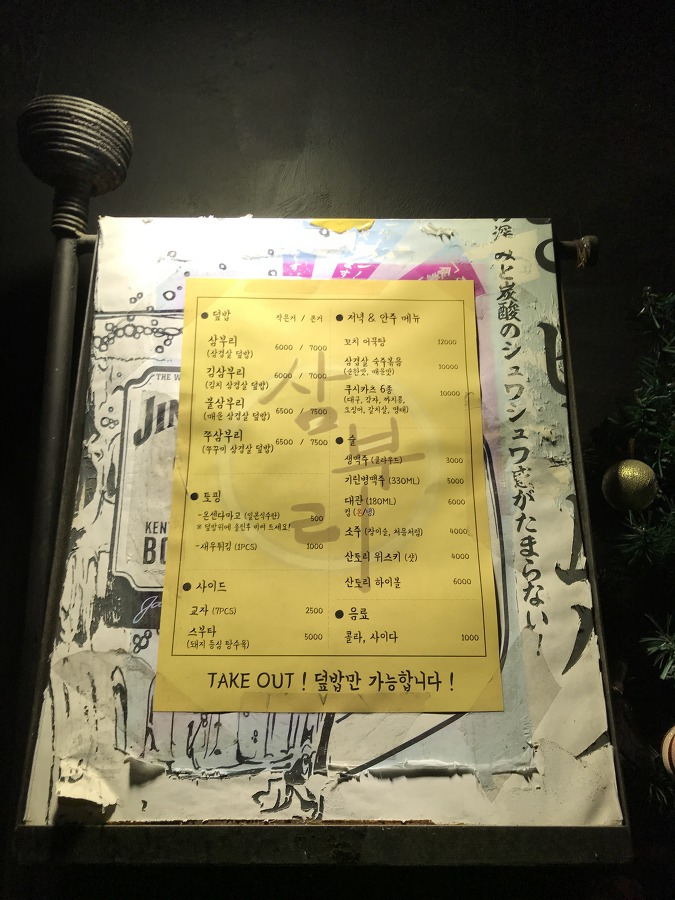 덮밥 작은거 / 큰거
삼부리 6000 / 7000
(삼겹살 덮밥)
김삼부리 6000 / 7000
(김치 삼겹살 덮밥)
불삼부리 6500 / 7500
(매운 삼겹살 덮밥)
쭈삼부리 6500 / 7500
(쭈꾸미 삼겹살 덮밥)
토핑
-온센타마고 (일본식수란) 500
※ 덮밥위에 올린후 비벼 드세요!
-새우튀김 (1PCS) 1000
사이드
교자 (7PCS) 2500
스부타 5000
(돼지 등심 탕수육)
저녁 & 안주 메뉴
꼬치 어묵탕 12000
삼겹살 숙주볶음 10000
(순한맛, 매운맛)
쿠시카츠 6종 10000
(대구, 감자, 까치콩,
오징어, 갈치살, 명태)
술
생맥주 (클라우드) 3000
기린병맥주 (330ML) 5000
대관 (180ML) 6000
컵 (온/냉)
소주 (참이슬, 처음처럼) 4000
산토리 위스키 (샷) 4000
산토리 하이볼 6000
음료
콜라, 사이다 1000
TAKE OUT ! 덮밥만 가능합니다 !
삼
부
리
深みと炭酸のシュワシュワ感がたまらない!
THE W
JIM
KENT
BO